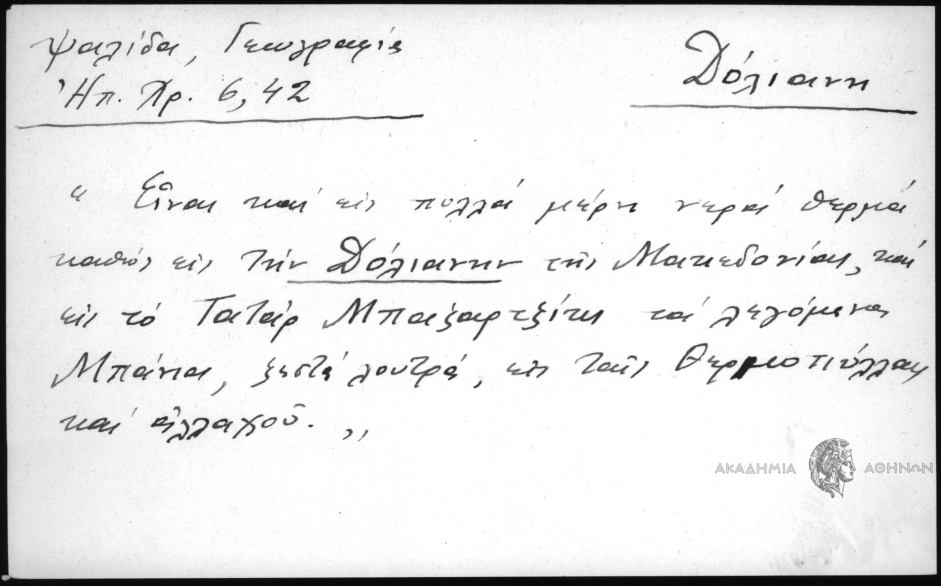 Ψαλίδα, Γεωγραφία
Ἠπ. Χρ. 6, 42
Δόλιανη
" Εἶναι καὶ εἰς πολλά μέρη νερά θερμά
καθὼς εἰς τὴν Δόλιανην τῆς Μακεδονίας, καί
εἰς τό Τατάρ Μπαζαρτζίτι τά λεγόμενα
Μπάνια, ζεστά λουτρά, εἰς ταῖς Θερμοπύλλαις
καί ἀλλαχοῦ. „
ΑΚΑΔΗΜΙΑ ΑΘΗΝΩΝ